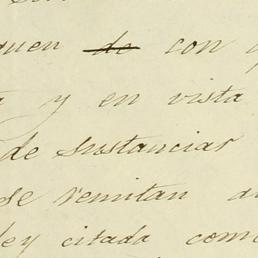 quen de con
y en vista
de sustanciar
se remitan
ley citada como